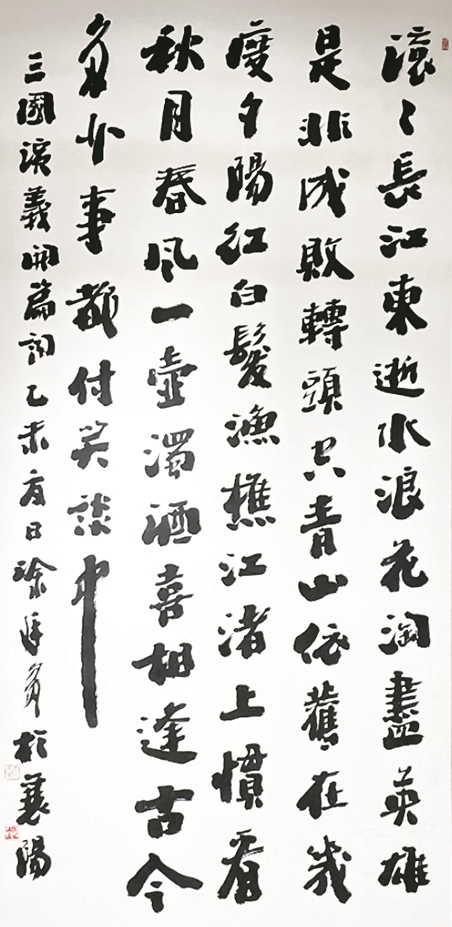 滚々長江東逝水浪花淘盡英雄
是非成敗轉頭空青山依舊在幾
度夕陽紅白髮漁樵江渚上慣看
秋月春风一壺濁酒喜相逢古今
多少事都付笑談中
三國演義開篇詞乙未夏日徐於襄陽